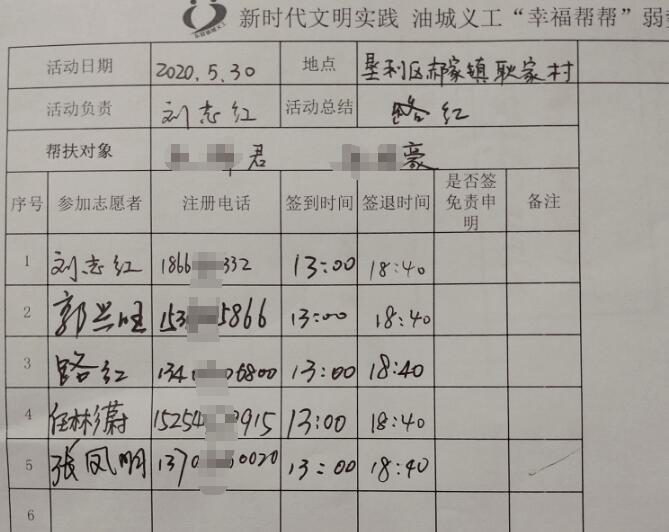 新时代文明实践 油城义工“幸福帮帮”弱
活动日期 2020.5.30 地点 垦利区郝家镇耿家村
活动负责 刘志红 活动总结 路红
帮扶对象 君 豪
序号 参加志愿者 注册电话 签到时间 签退时间 是否签免责申明 备注
1 刘志红 1866 332 13:00 18:40
2 郭兴旺 153 5866 13:00 18:40
3 路红 134 06800 13:00 18:40
4 任林蔚 15254 9915 13:00 18:40
5 张凤明 1370 0020 13:00 18:40
6